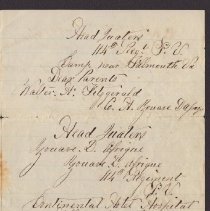 Head Quaters
114th Regt P. V
Camp near Falmouth Va
Dear Parents
Walter A. Fitzgerald
Co. A. Zouave
Head Quaters
Zouave D. Afrique
Zouave D. Afrique
114th Regiment
P. V
Continental Hotel Hospital